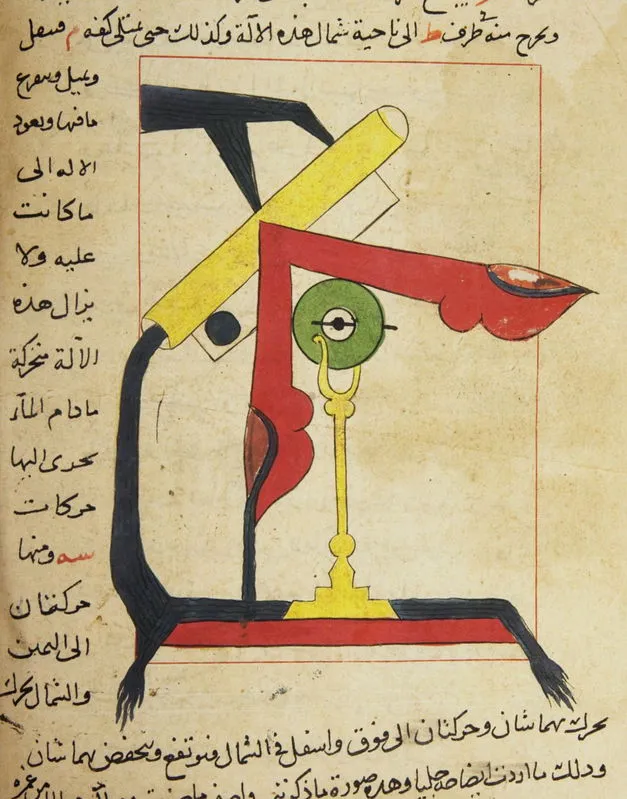 ويخرج منه طرف ط الى ناحية شمال هذه الالة وكذلك حتى تمتلى كفه م فتثقل
وتميل ويتفرغ
ما فيها ويعود
الاله الى
ما كانت
عليه ولا
يزال هذه
الآلة متحركة
ما دام الماء
يجرى اليها
حركات
سه ومنها
حركتان
الى اليمين
والشمال يحرك
بهما شان وحركتان الى فوق واسفل فى الشمال فيرتفع وينخفض بهما شان
وذلك ما اردت ايضاحه جليا وهذه صورة ما ذكرته واصف ما صنعت